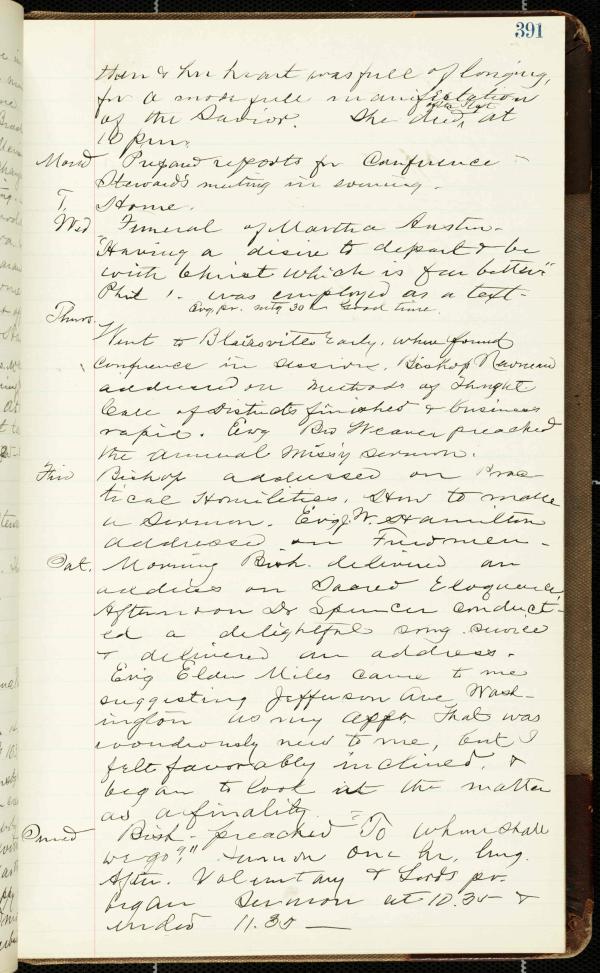 391
than & her heart was full of longing,
for a more full manifestation
of the Savior. She died, after that at
10 p.m.
Mond Prepared reports for Conference -
Steward's meeting in evening.
T. Home.
Wed Funeral of Martha Austin-
"Having a desire to depart & be
with Christ which is far better"
Phil 1. was employed as a text-
Evg. pr. mtg 30 Good time.
Thurs.
Went to Blairsville Early, where found
Conference in session. Bishop
addressed on Methods of Thought
Call of Districts finished & business
rapid. Evg Bro Weaver preached
the annual Miss'y sermon.
Fri Bishop addressed on Prac-
tical Homilitics. How to make
a Sermon. Evg J.W. Hamilton
addressed on Freedmen-
Sat. Morning Bish. delivered an
address on Sacred Eloquence,
Afternoon Dr Spencer conduct-
ed a delightful song service
& delivered an address.
Evg Elder Miles came to me
suggesting Jefferson Ave Wash-
ington as my appt. That was
wondrously new to me, but I
felt favorably inclined, &
began to look at the matter
as a finality.
Bish- preached "To whom shall
we go?" Sermon one hr. long.
After. Voluntary & Lords pr.
began Sermon at 10.35 &
ended 11.35 —